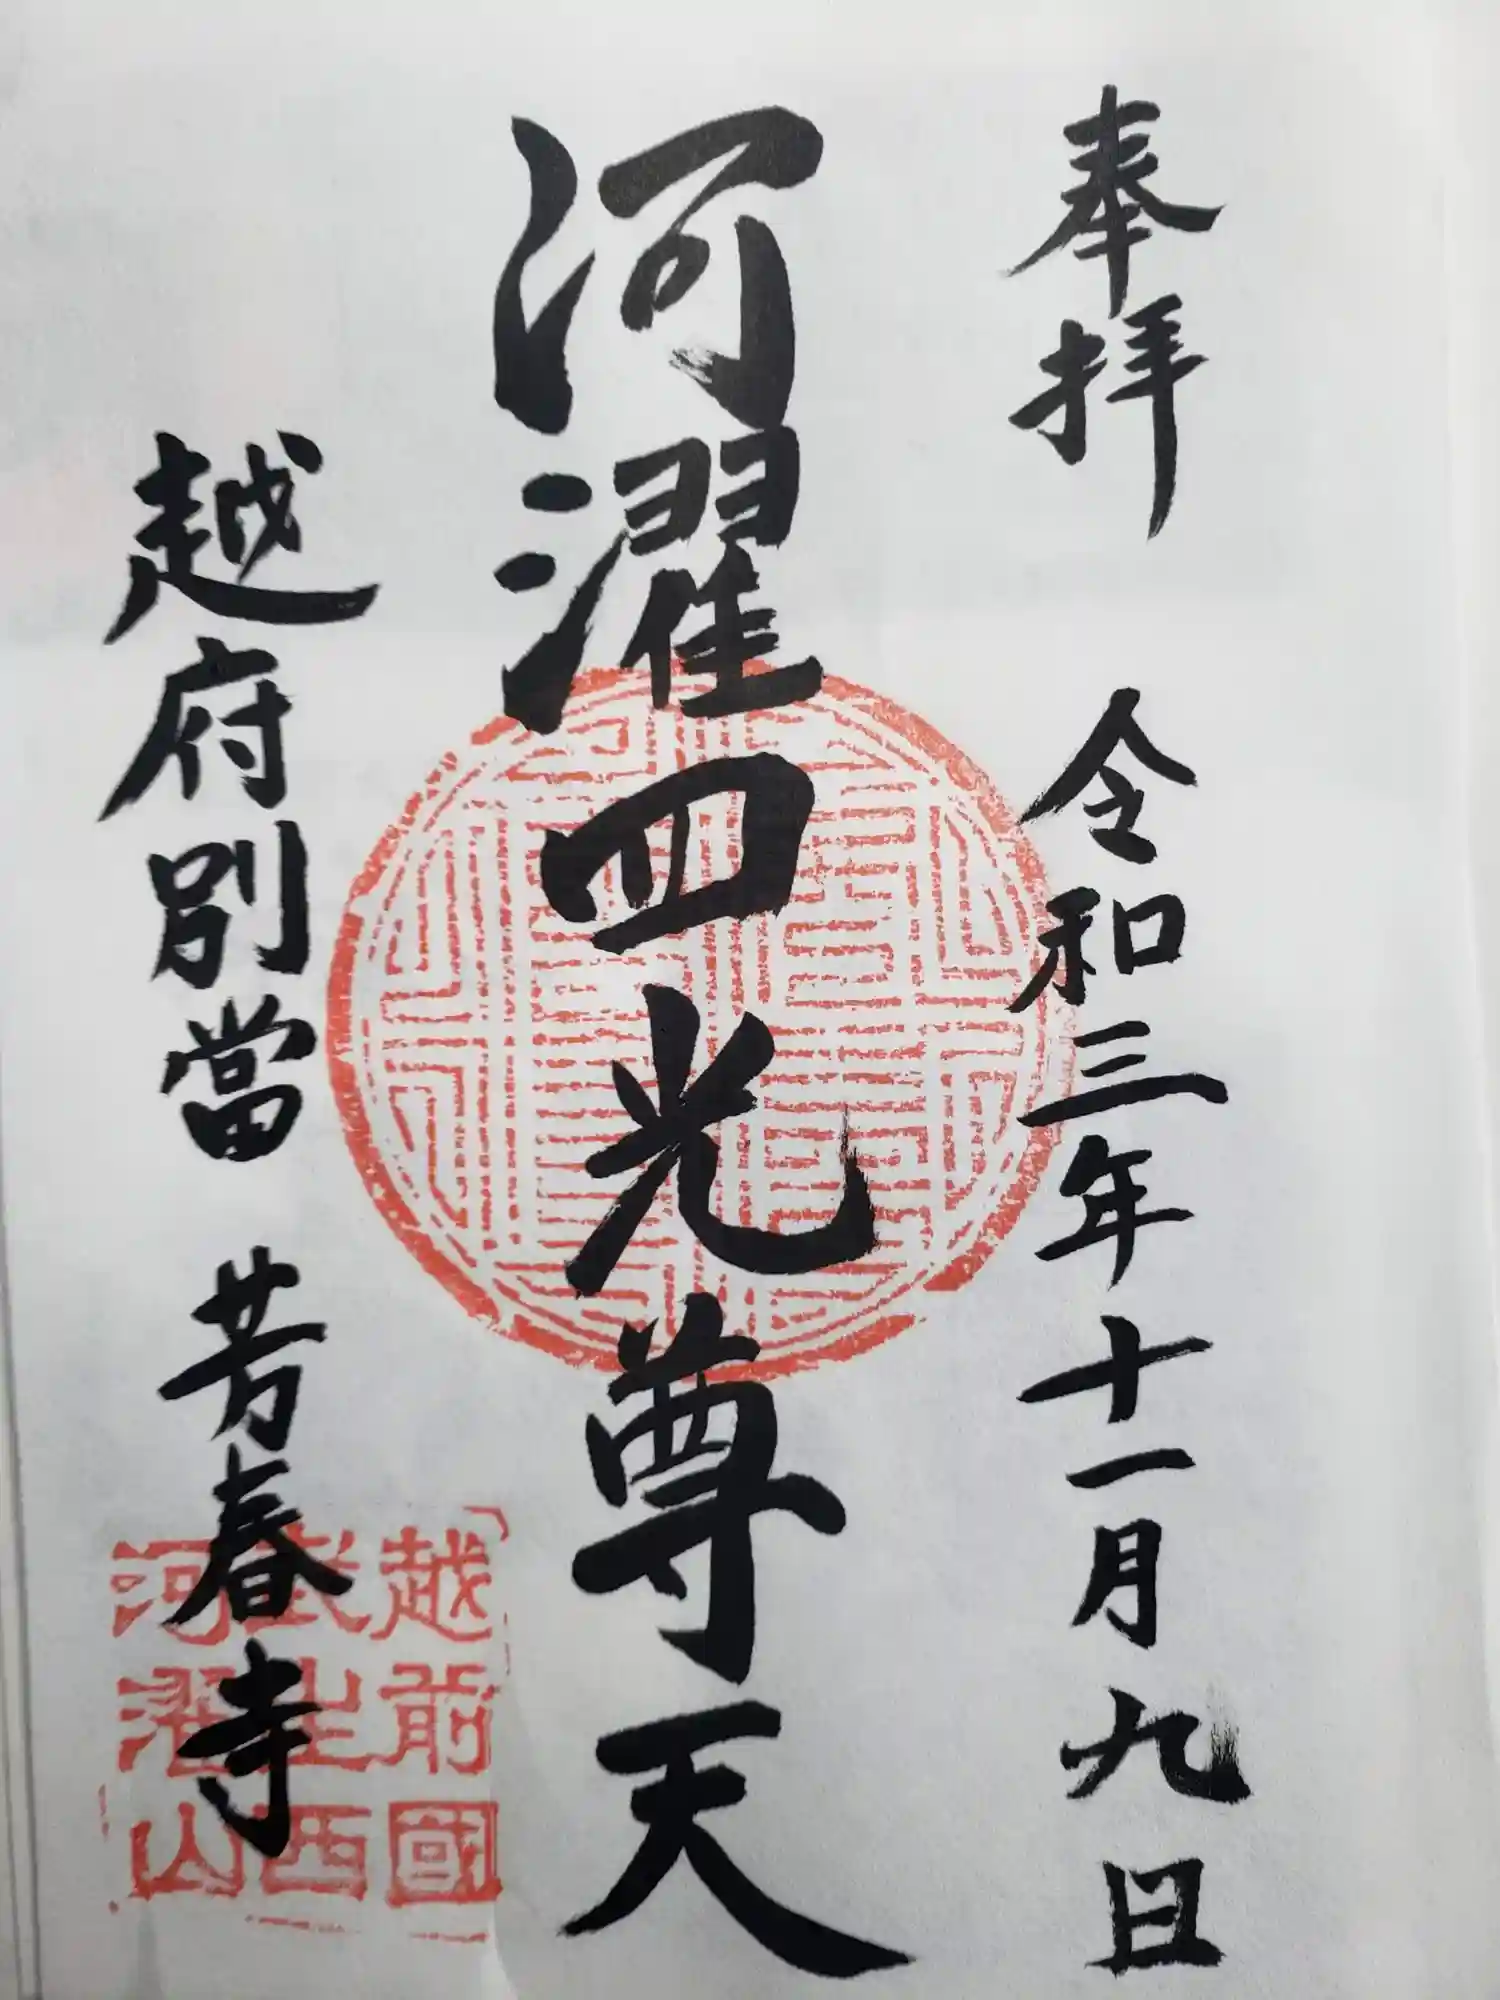 奉拜 令和三年十一月九日
河濯四光尊天
越府別當 芳春寺
越前國
武生西
河濯山